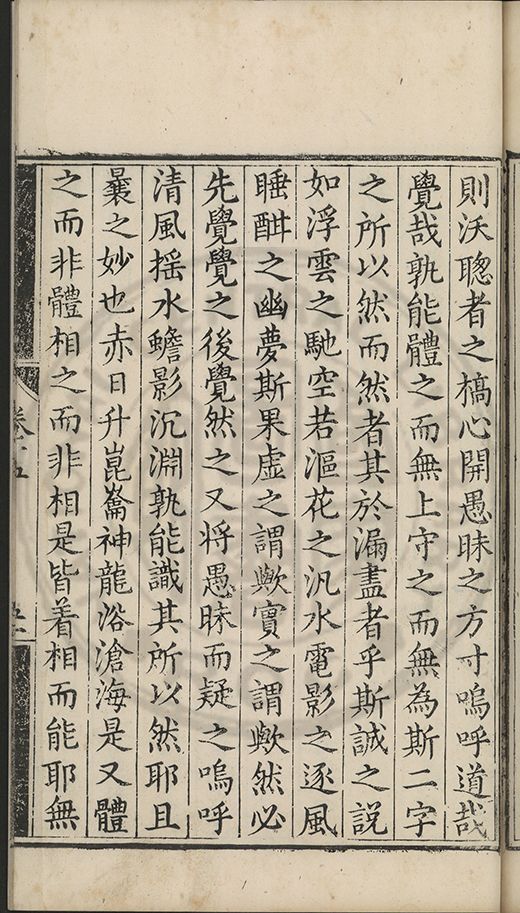 則沃聦者之槁心開愚昧之方寸嗚呼道哉
覺哉孰能體之而無上守之而無為斯二字
之所以然而然者其於漏盡者乎斯誠之説
如浮雲之馳空若漚花之汎水電影之逐風
睡酣之幽夢斯果虛之謂歟實之謂歟然必
先覺覺之後覺然之又将愚昧而疑之嗚呼
清風揺水蟾影沉淵孰能識其所以然耶且
曩之妙也赤日升崑崙神龍浴滄海是又體
之而非體相之而非相是皆着相而能耶無
卷十五
五